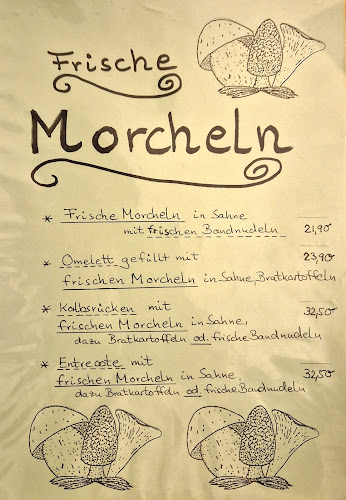 Frische
Morcheln
* Frische Morcheln in Sahne
mit frischen Bandnudeln 21,90
* Omelett gefüllt mit 23,90
frischen Morcheln in Sahne, Bratkartoffeln
* Kalbsrücken mit 32,50
frischen Morcheln in Sahne,
dazu Bratkartoffeln od. frische Bandnudeln
* Entrecote mit
frischen Morcheln in Sahne, 32,50
dazu Bratkartoffeln od frische Bandnudeln